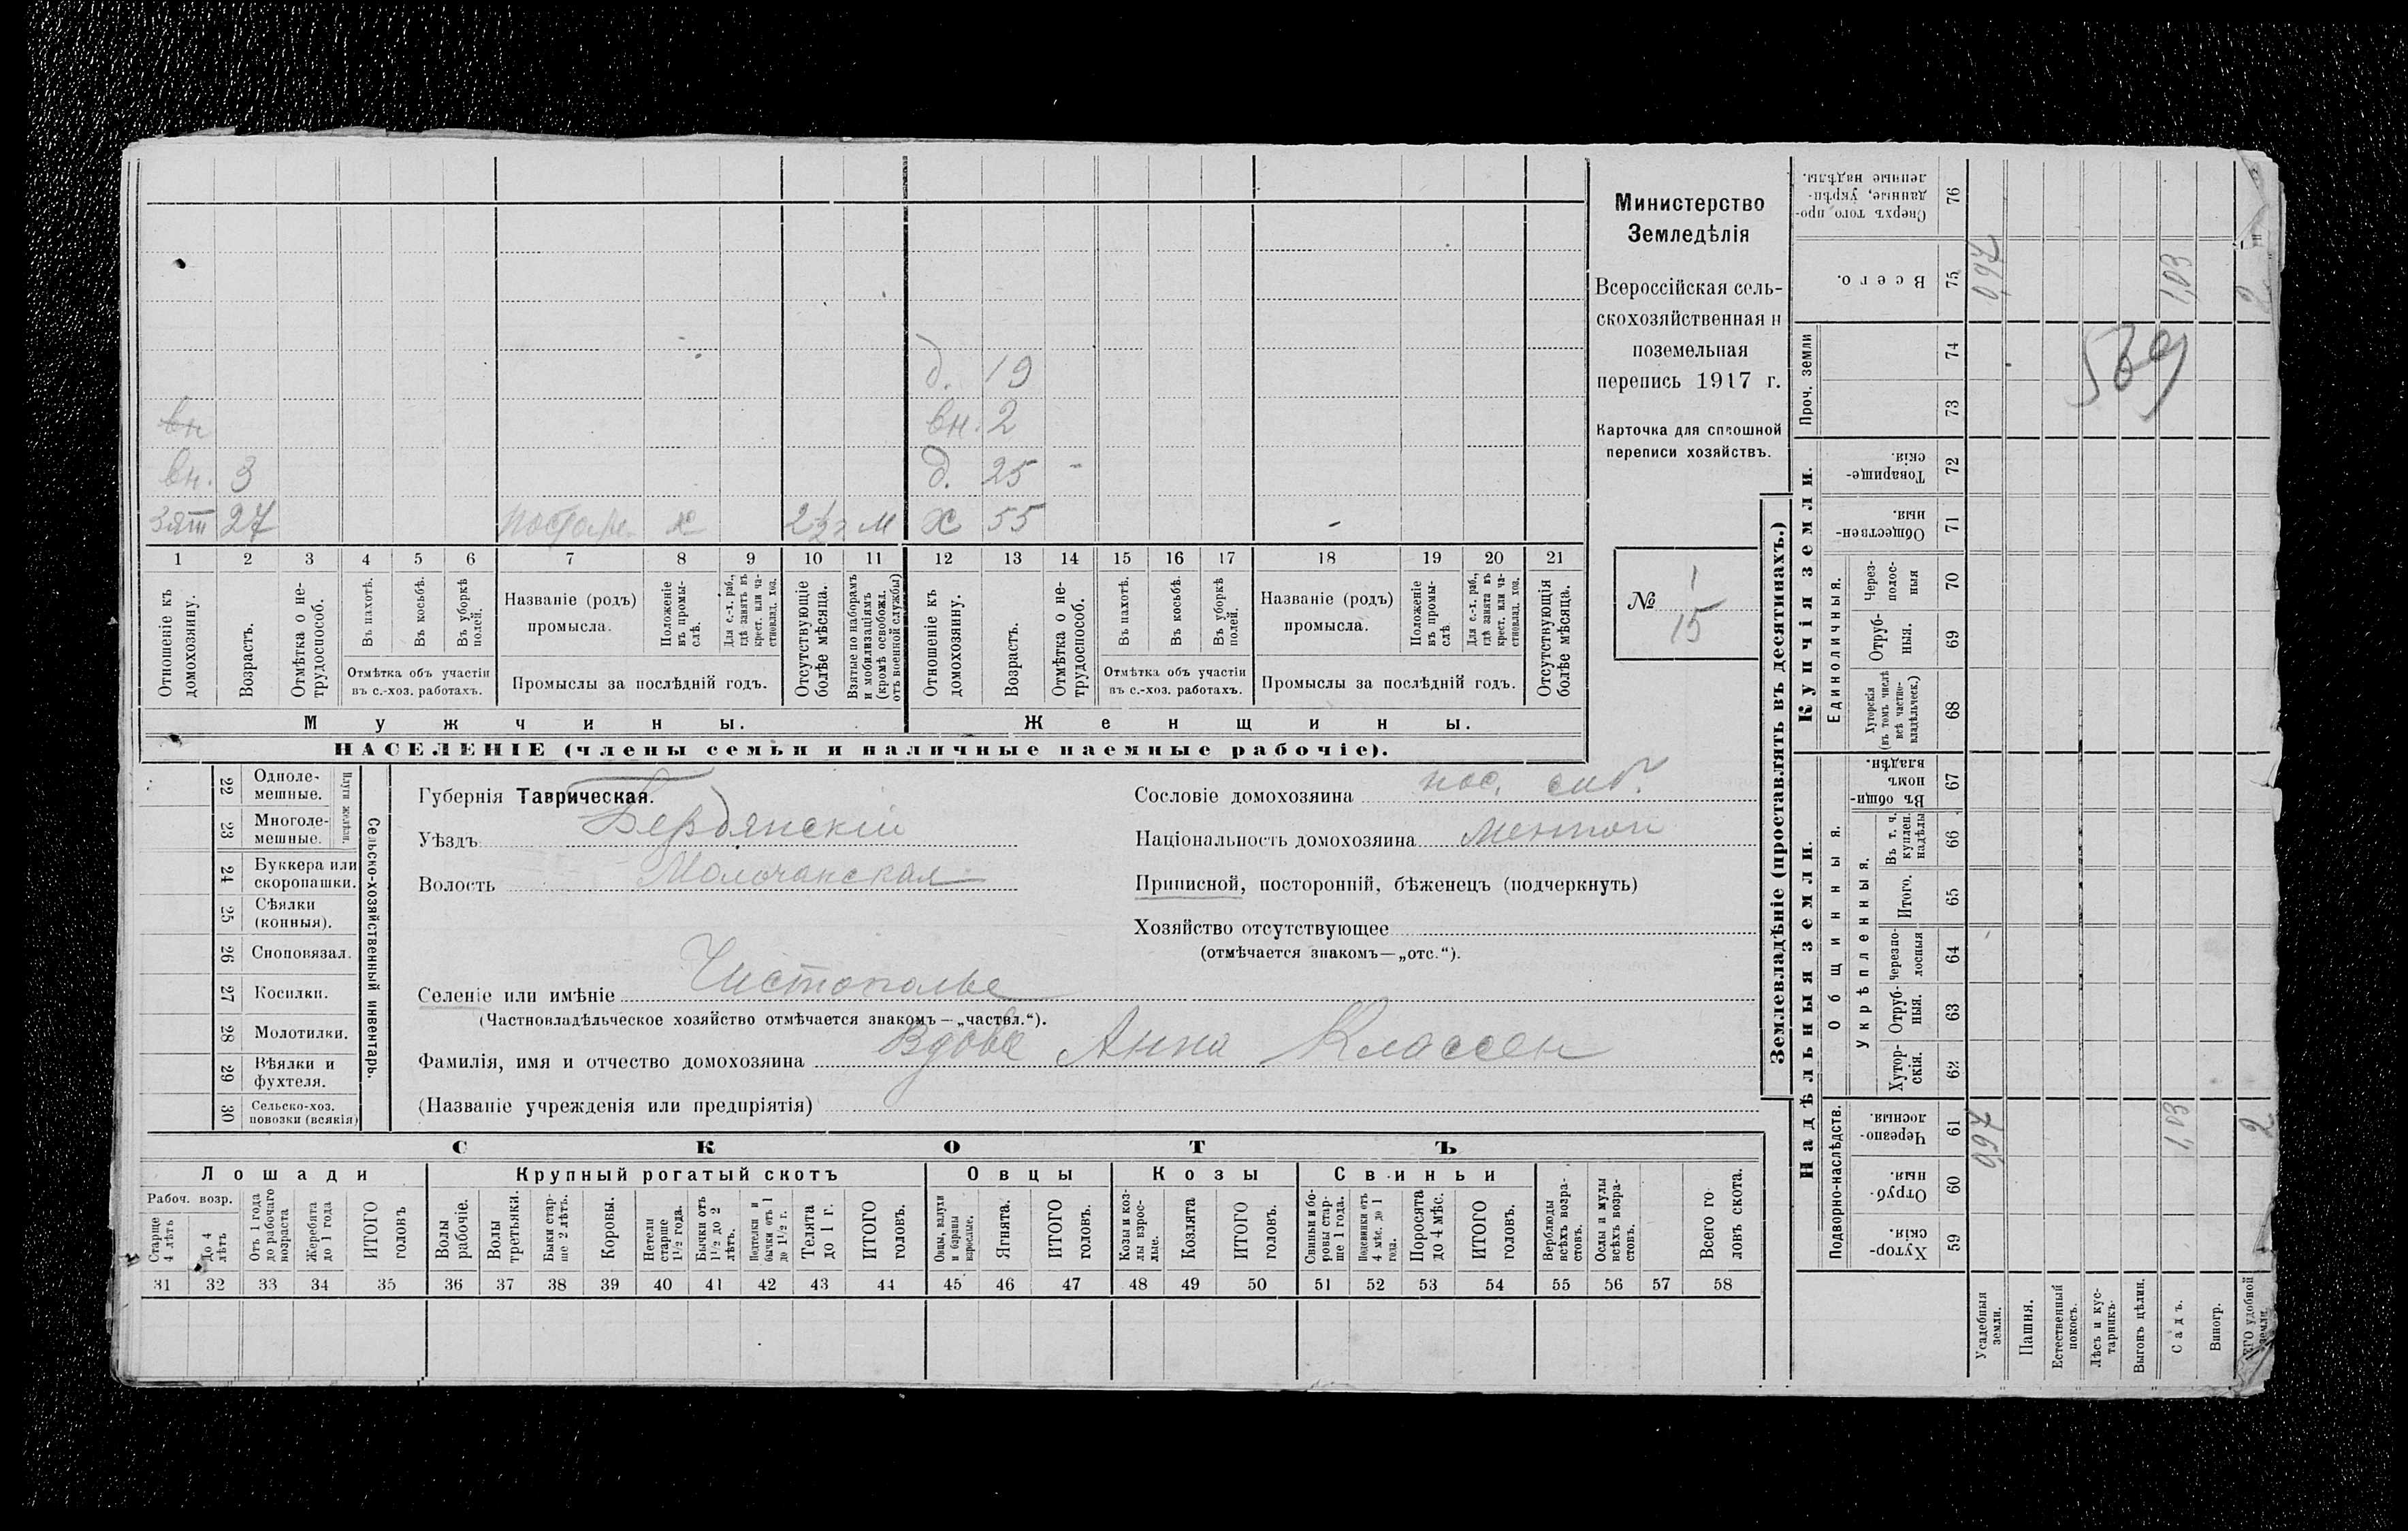 д. 19
вн
вн. 2
вн. 3
д. 25 -
зят 27
2½ г м
х 55
-
1 2 3 4 5 6 7 8 9 10 11 12 13 14 15 16 17 18 19 20 21
Отношеніе къ домохозяину.
Возрастъ.
Отмѣтка о не-трудоспособ.
Въ пахотѣ.
Въ косьбѣ.
Въ уборкѣ полей.
Отмѣтка объ участіи
въ с.-хоз. работахъ.
Названіе (родъ)
промысла.
Положеніе въ промы-слѣ.
Для с.-х. раб., гдѣ занятъ въ крест. или ча-стновлад. хоз.
Промыслы за послѣдній годъ.
Отсутствующіе болѣе мѣсяца.
Взятые по наборамъ и мобилизаціямъ (кромѣ освобожд. отъ военной службы)
Отношеніе къ домохозяину.
Возрастъ.
Отмѣтка о не-трудоспособ.
Въ пахотѣ.
Въ косьбѣ.
Въ уборкѣ полей.
Отмѣтка объ участіи
въ с.-хоз. работахъ.
Названіе (родъ)
промысла.
Положеніе въ промы-слѣ
Для с.-х. раб., гдѣ занята въ крест. или ча-стновлад. хоз.
Промыслы за послѣдній годъ.
Отсутствующія болѣе мѣсяца.
Мужчины.
Женщины.
НАСЕЛЕНІЕ (члены семьи и наличные наемные рабочіе).
Министерство
Земледѣлія
Всероссійская сель-
скохозяйственная и
поземельная
перепись 1917 г.
Карточка для сплошной
переписи хозяйствъ.
№ 1
15
22 Одноле-
мешные.
23 Многоле-
мешные.
Плуги желѣзн.
24 Буккера или
скоропашки.
25 Сѣялки
(конныя).
26 Сноповязал.
27 Косилки.
28 Молотилки.
29 Вѣялки и
фухтеля.
30 Сельско-хоз.
повозки (всякія)
Сельско-хозяйственный инвентарь.
Губернія Таврическая.
Уѣздъ Бердянскій
Волость Молочанская
Селеніе или имѣніе Чистополье
(Частновладѣльческое хозяйство отмѣчается знакомъ — „частвл.“).
Фамилія, имя и отчество домохозяина Вдова Анна Классен
(Названіе учрежденія или предпріятія)
Сословіе домохозяина пос. соб.
Національность домохозяина
Приписной, посторонній, бѣженецъ (подчеркнуть)
Хозяйство отсутствующее
(отмѣчается знакомъ—„отс.“).
СКОТЪ
Лошади
Крупный рогатый скотъ
Овцы
Козы
Свиньи
Рабоч. возр.
Старше 4 лѣтъ
До 4 лѣтъ
Отъ 1 года до рабочаго возраста
Жеребята до 1 года
ИТОГО головъ
Волы рабочіе.
Волы третьяки.
Быки стар-ше 2 лѣтъ.
Коровы.
Нетели старше 1½ года.
Бычки отъ 1½ до 2 лѣтъ.
Подтелки и бычки отъ 1 до 1½ г.
Телята до 1 г.
ИТОГО головъ.
Овцы, валухи и бараны взрослые.
Ягнята.
ИТОГО головъ.
Козы и коз-лы взрос-лые.
Козлята
ИТОГО головъ.
Свиньи и бо-ровы стар-ше 1 года.
Подсвинки отъ 4 мѣс. до 1 года.
Поросята до 4 мѣс.
ИТОГО головъ.
Верблюды всѣхъ возра-стовъ.
Ослы и мулы всѣхъ возра-стовъ.
Всего го-ловъ скота.
31 32 33 34 35 36 37 38 39 40 41 42 43 44 45 46 47 48 49 50 51 52 53 54 55 56 57 58
Землевладѣніе (проставлять въ десятинахъ.)
Надѣльныя земли.
Купчія земли.
Проч. земли
Подворно-наслѣдств.
Общинныя.
Укрѣпленныя.
Единоличныя.
Хутор-скія. 59
Отруб-ныя. 60
Черезпо-лосныя. 61
Хутор-скія. 62
Отруб-ныя. 63
Черезпо-лосныя 64
Итого. 65
Въ т. ч. куплен. надѣлы 66
Въ общин-номъ владѣн. 67
Хуторскія (въ томъ числѣ всѣ частно-владѣльческ.) 68
Отруб-ныя. 69
Через-полос-ныя 70
Обществен-ныя. 71
Товарище-скія. 72
73
74
Всего. 75
Сверхъ того про-данные, укрѣп-ленные надѣлы. 76
Усадебныя земли.
0,97
0,97
Пашня.
Естественный покосъ.
Лѣсъ и кус-тарникъ.
Выгонъ цѣлин.
Садъ.
1,03
1,03
Виногр.
удобной земли
2
2
569